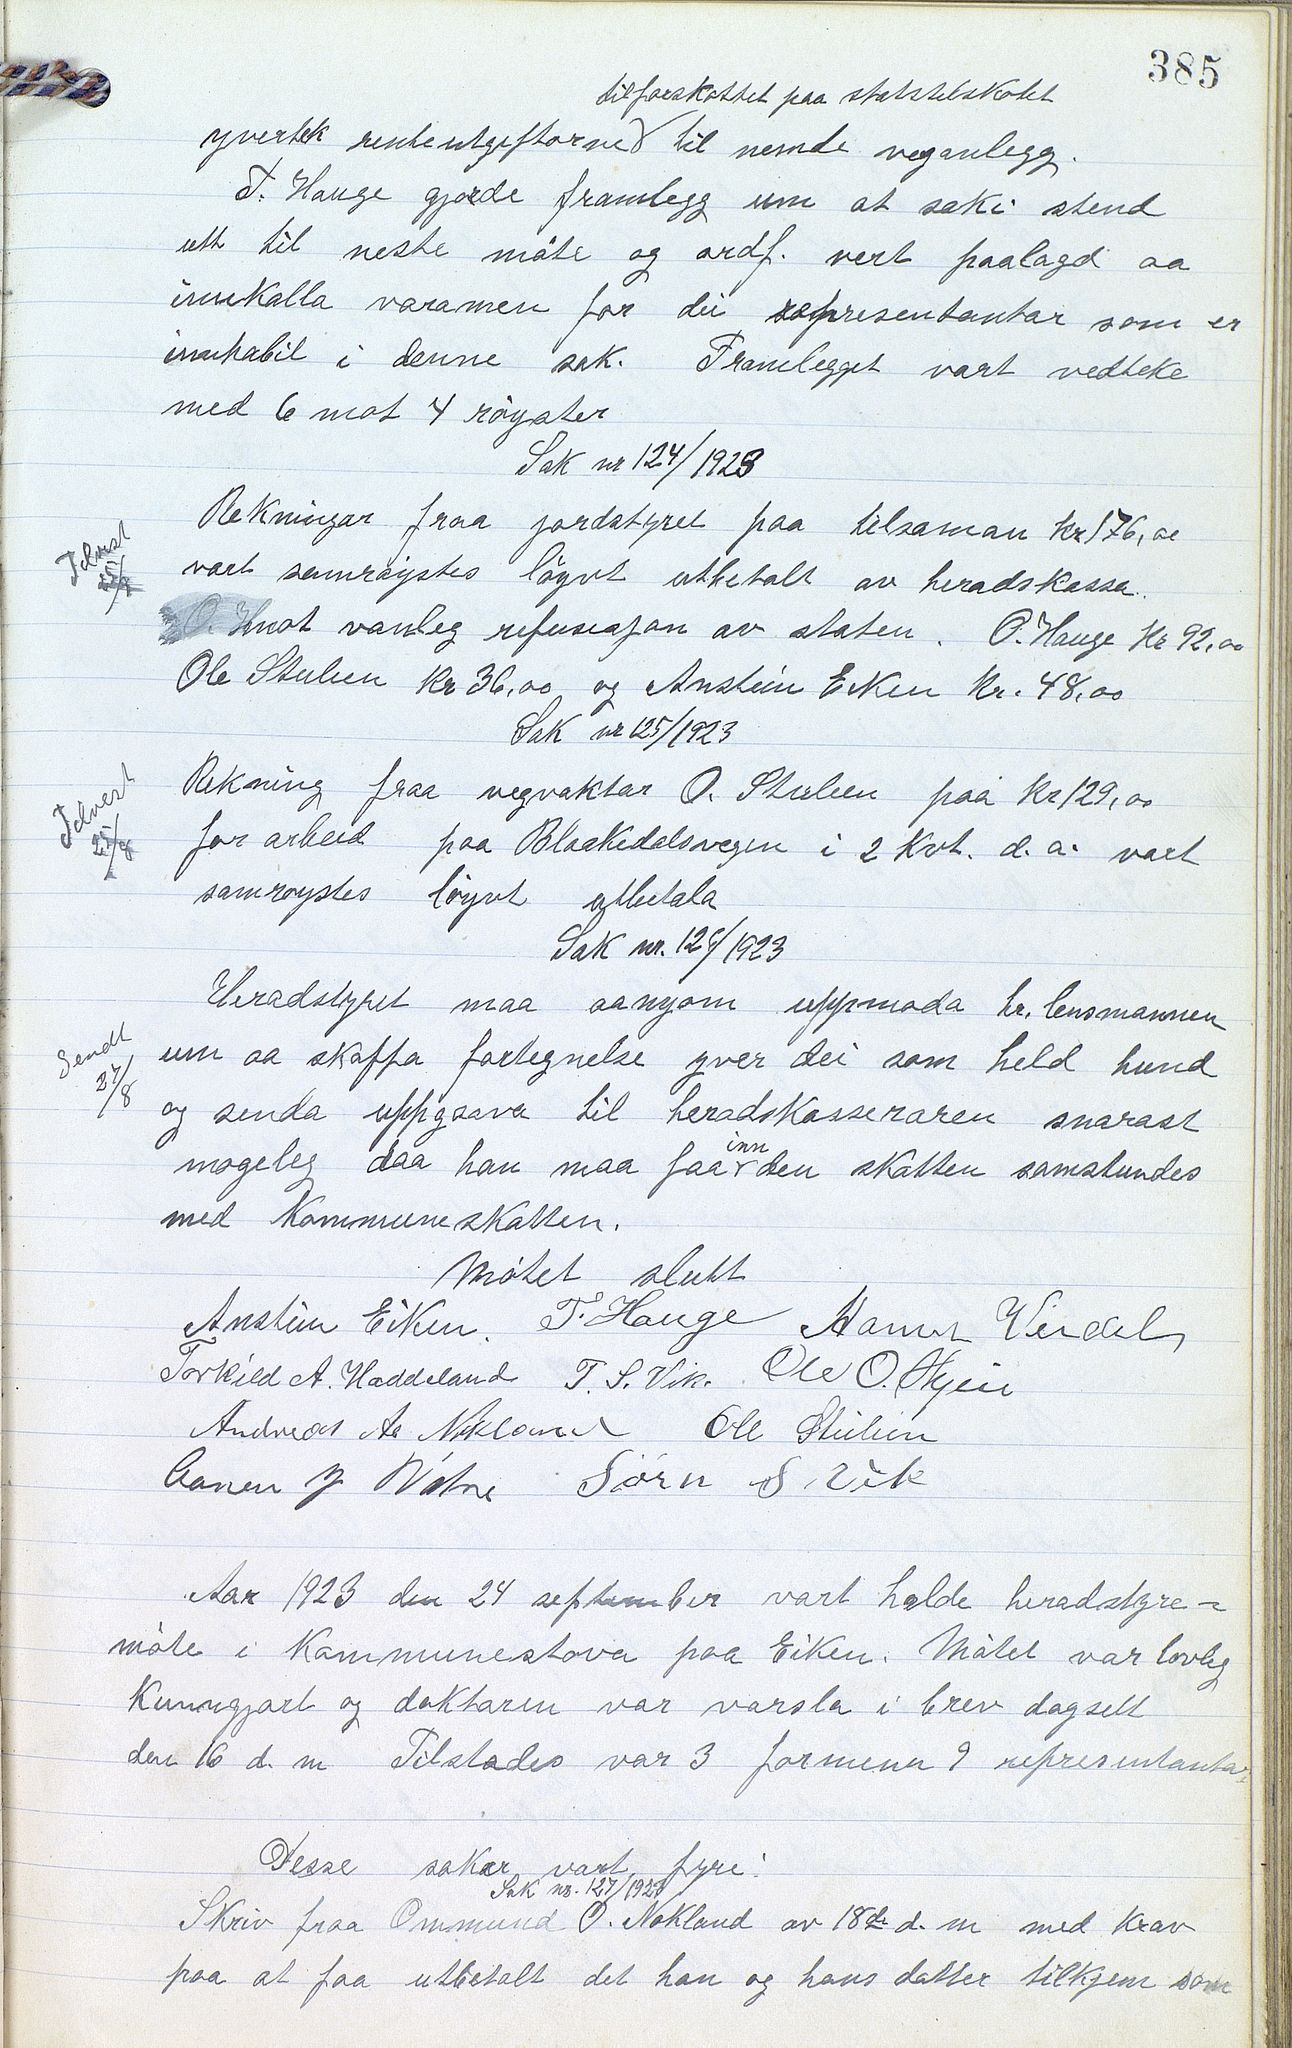 385
til forskottet paa statstilskotet
yvertek renteutgiftorne til nemde veganlegg.
T. Hauge gjorde framlegg um at saki stend
utt til neste møte og ordf. vert paalagd aa
innkalla varamen for dei representantar som er
innhabil i denne sak. Framlegget vart vedteke
med 6 mot 4 røyster
Sak nr 124/1923
Rekningar fraa jordstyret paa tilsaman kr 176,oo
vart samrøystes løyvt utbetalt av heradskassa.
mot vanleg refusasjon av staten. O. Hauge kr 92,oo
Ole Stulien kr 36,oo og Anstein Eiken kr. 48,oo
Sak nr 125/1923
Rekning fraa vegvaktar O. Stulien paa kr 129,oo
for arbeid paa Blaakedalsvegen i 2 kvt. d.a. vart
samrøystes løyvt utbetala
Sak nr. 126/1923
Heradstyret maa aanyom uppmoda hr. lensmannen
um aa skaffa fortegnelse yver dei som held hund
Sendt 27/8
og senda uppgaava til heradskasseraren snarast
mogeleg daa han maa faa inn den skatten samstundes
med kommuneskatten.
Møtet slutt
Anstein Eiken. T. Hauge
Torkild A. Haddeland T. S. Vik. Ole O.
Andreas Aa Nøkland Ole Stulien
Aanen Sørn S. Vik
Aar 1923 den 24 september vart halde heradstyre-
møte i kommunestova paa Eiken. Møtet var lovleg
kunngjort og doktaren var varsla i brev dagsett
den 16 d.m Tilstades var 3 formenn 9 representantar
Desse saker vart fyre:
Sak nr. 127/1923
Skriv fraa Ommund O. Nøkland av 18de d.m med krav
paa at faa utbetalt det han og hans datter tilkjem som